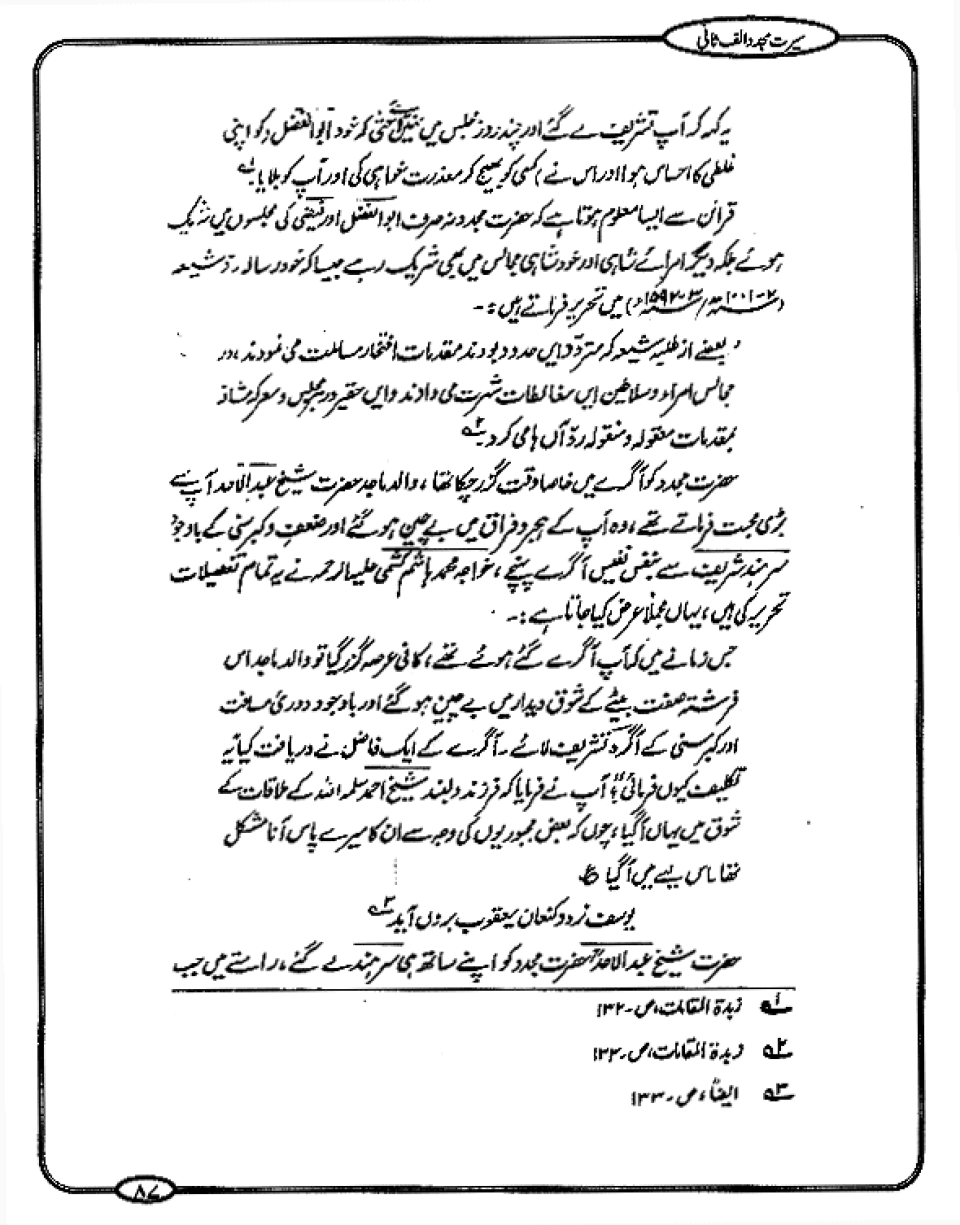 سیرت مجدد الف ثانی
یہ کہہ کر آپ تشریف لے گئے اور چند روز مجلس میں نہیں آئے حتیٰ کہ خود ابوالفضل کو اپنی
غلطی کا احساس ہوا اور اس نے کسی کو بھیج کر معذرت خواہی کی اور آپ کو بلایا۔ ۱ھ
قرائن سے ایسا معلوم ہوتا ہے کہ حضرت مجدد نہ صرف ابوالفضل اور فیضی کی مجلسوں میں شریک
ہوئے بلکہ دیگر امرائے شاہی اور خود شاہی مجالس میں بھی شریک رہے جیسا کہ خود رسالہ ردّ شیعہ
میں تحریر فرماتے ہیں :۔
بعضے از طلبہ شیعہ کہ متردّد ایں حدود بودند مقدمات افتخار مسالمت می نمودند، در
مجالس امراء و سلاطین ایں مغالطات شہرت می دادند و ایں حقیر در ہر مجلس و معرکہ مشاذ
بمقدمات معقولہ و منقولہ ردّ آں ہا می کرد۔ ۲ھ
حضرت مجدد کو آگرے میں خاصا وقت گزر چکا تھا، والد ماجد حضرت شیخ عبدالاحد آپ سے
بڑی محبت فرماتے تھے، وہ آپ کے ہجر و فراق میں بے چین ہو گئے اور ضعف و کبر سنی کے باوجود
سرہند شریف سے بنفس نفیس آگرے پہنچے، خواجہ محمد ہاشم کشمی علیہ الرحمہ نے یہ تمام تفصیلات
تحریر کی ہیں، یہاں مجملاً عرض کیا جاتا ہے :۔
جس زمانے میں کہ آپ آگرے گئے ہوئے تھے، کافی عرصہ گزر گیا تو والد ماجد اس
فرشتہ صفت بیٹے کے شوق دیدار میں بے چین ہو گئے اور باوجود دوریٔ مسافت
اور کبر سنی کے آگرہ تشریف لائے۔ آگرے کے ایک فاضل نے دریافت کیا یہ
تکلیف کیوں فرمائی؟ آپ نے فرمایا کہ فرزند دلبند شیخ احمد سلمہ اللہ کے ملاقات کے
شوق میں یہاں آ گیا، چوں کہ بعض مجبوریوں کی وجہ سے ان کا میرے پاس آنا مشکل
تھا اس لیے میں آ گیا ع
یوسف نرود کنعان یعقوب بروں آید ۳ھ
حضرت شیخ عبدالاحدؒ حضرت مجدد کو اپنے ساتھ ہی سرہند لے گئے، راستے میں جب
۱ھ زبدة المقامات، ص۔ ۱۳۲
۲ھ زبدة المقامات، ص۔ ۱۳۲
۳ھ ایضاً، ص۔ ۱۳۳
۸۷